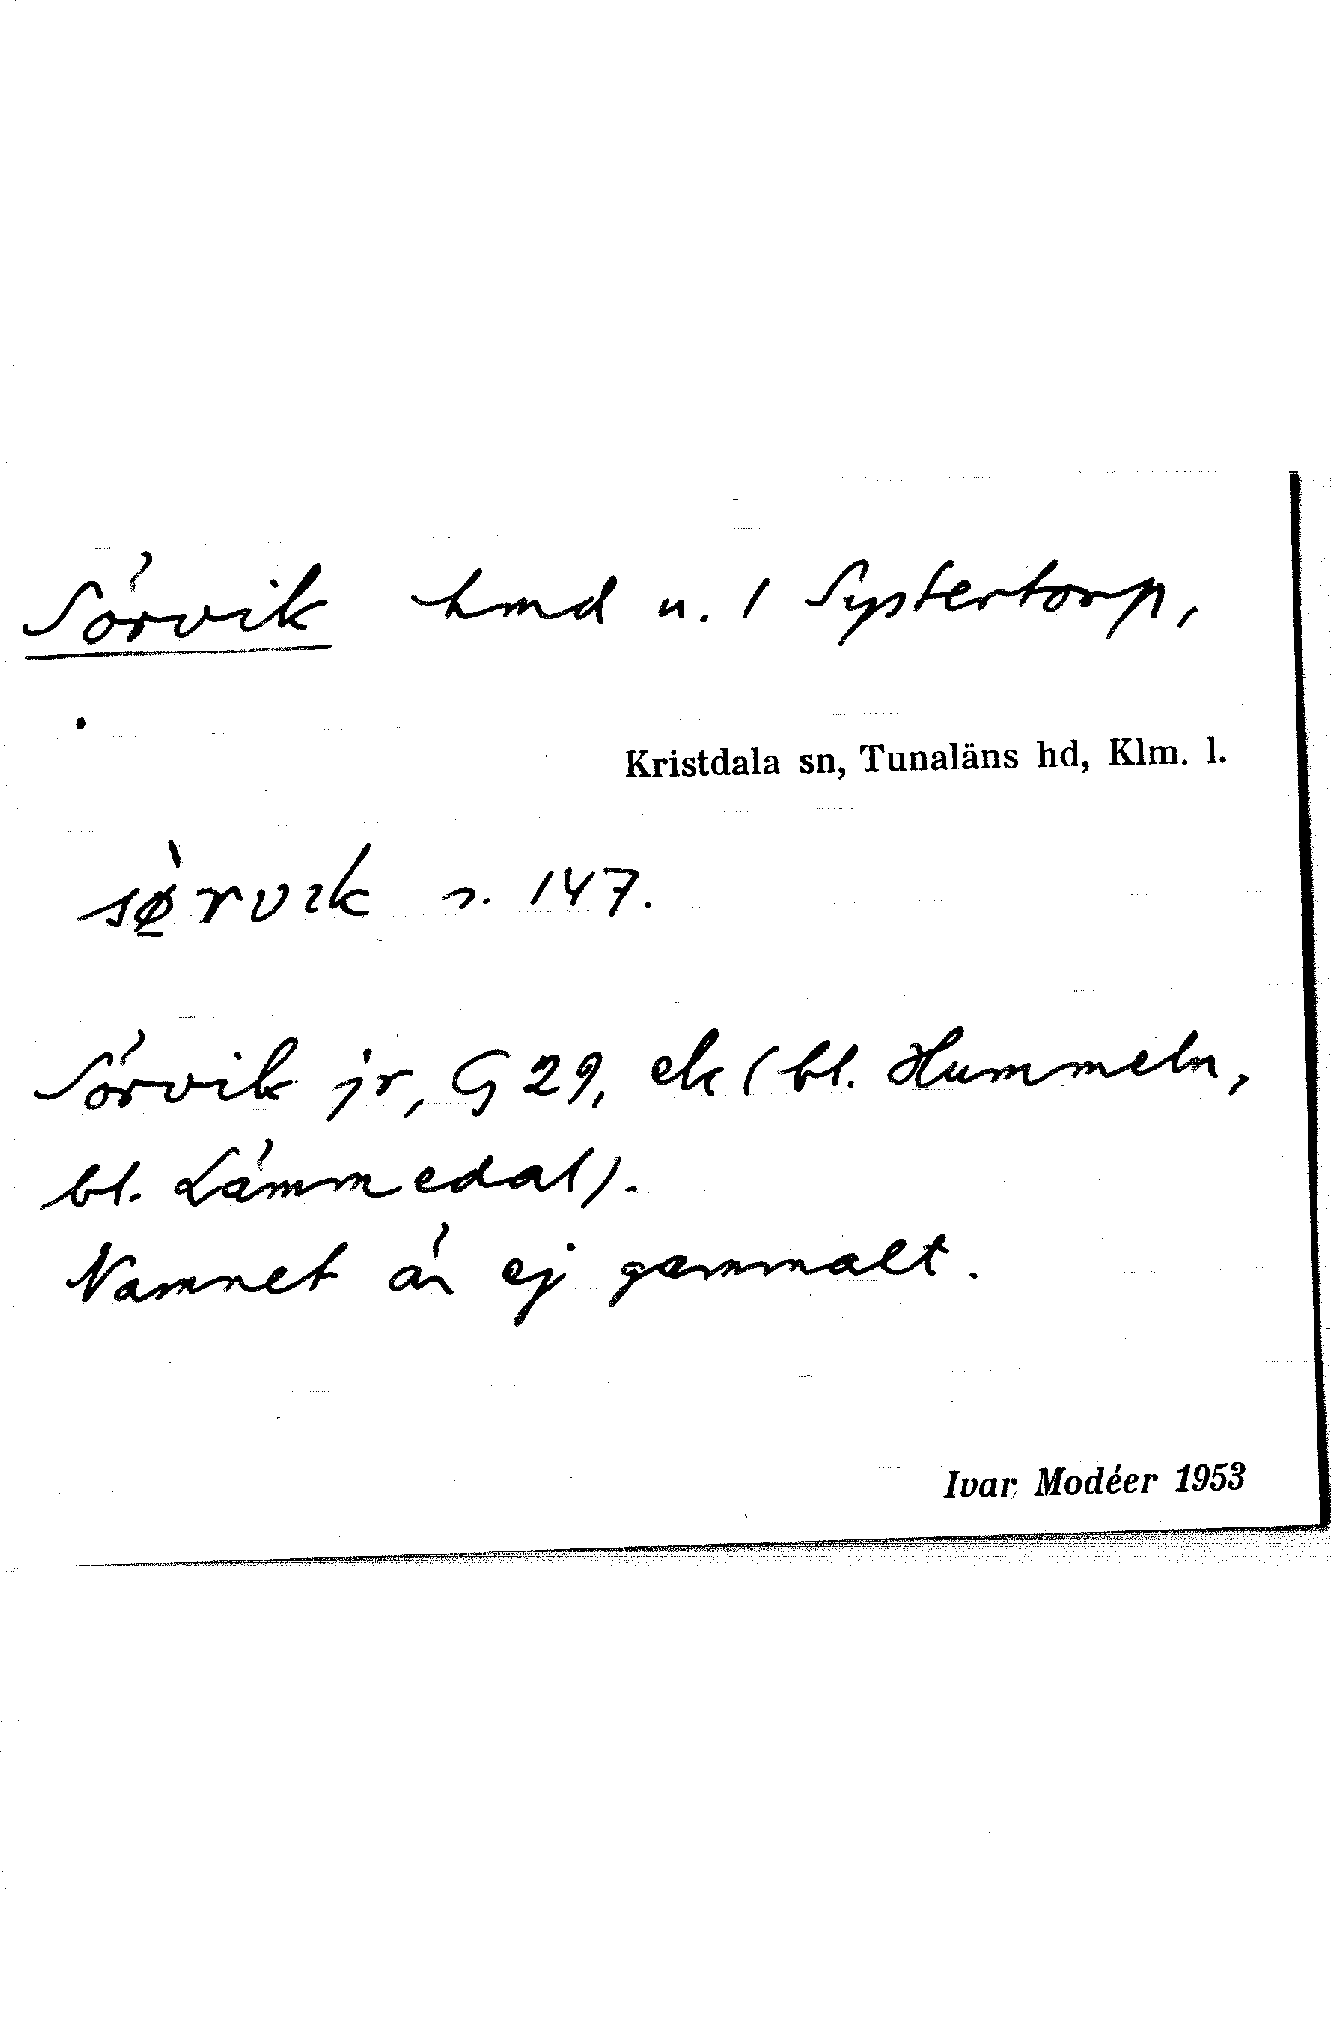 Sörvik hmd u. 1 Systertorp,
Kristdala sn, Tunaläns hd, Klm. l.
sø̠̀rvık s. 147.
Sörvik jr, G 29, ek (bl. Hummeln,
bl. Lämmedal).
Namnet är ej gammalt.
Ivar Modéer 1953